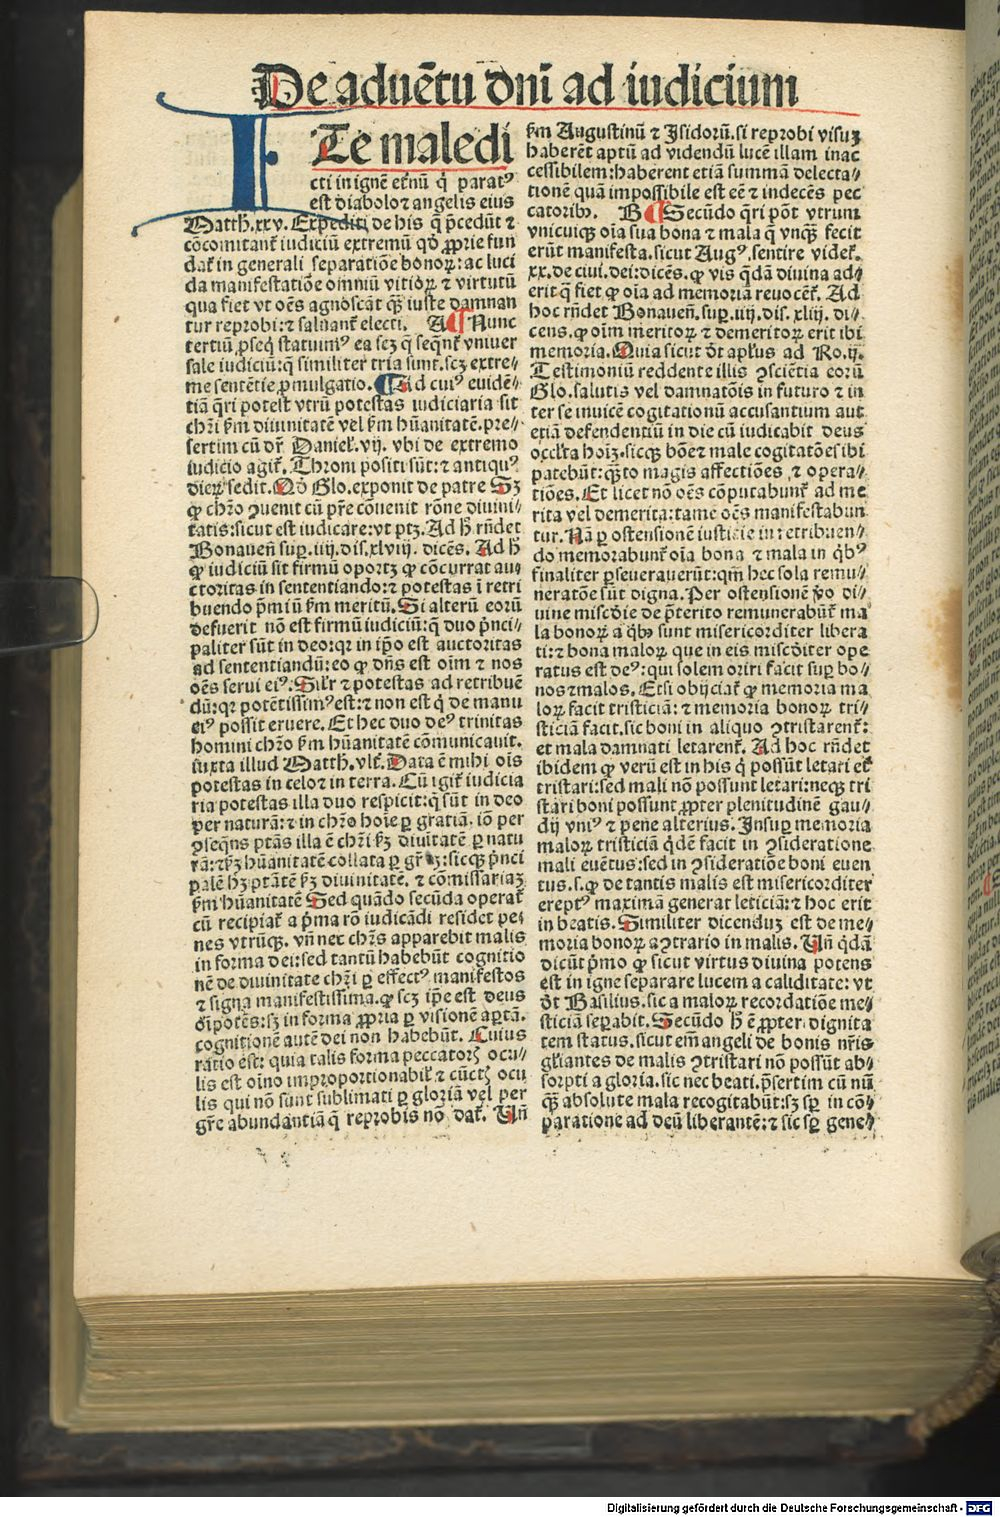 De aduētu dnī ad iudicium
ITe maledi
cti in ignē et̄nū q̇ paratꝰ
est diabolo ⁊ angelis eius
Matth.xxv. Expediti de his q̄ p̄cedūt ⁊
cōcomitant᷑ iudiciū extremū qḋ ꝓprie fun
dat᷑ in generali separatiōe bonoꝝ: ac luci
da manifestatiōe omniū vitioꝝ ⁊ virtutū
qua fiet vt oēs agnoscāt qꝫ iuste damnan
tur reprobi: ⁊ saluant᷑ electi. A ¶ Nunc
tertiū ꝓseq̇ statuimꝰ ea scꝫ q̄ seqn̄t᷑ vniuer
sale iudiciū: q̄ similiter tria sunt. scꝫ extre⸗
me sentētie ꝓmulgatio. ¶ Ad cuiꝰ euidē⸗
tiā q̄ri potest vtrū potestas iudiciaria sit
chr̄i ẜm diuinitatē vel ẜm hūanitatē. pre⸗
sertim cū dr̄ Daniel.vij. vbi de extremo
iudicio agit᷑. Throni positi sūt: ⁊ antiquꝰ
dieꝝ sedit. Qḋ Glo. exponit de patre Sꝫ
ꝙ chr̄o ꝯuenit cū pr̄e cōuenit rōne diuini⸗
tatis: sicut est iudicare: vt ptꝫ. Ad h̄ rn̄det
Bonauen̄ suꝑ.iiij.dis.xlviij. dicēs. Ad h̄
ꝙ iudiciū sit firmū oportꝫ ꝙ cōcurrat au⸗
ctoritas in sententiando: ⁊ potestas ī retri
buendo p̄miū ẜm meritū. Si alterū eorū
defuerit nō est firmū iudiciū: q̄ duo p̄nci⸗
paliter sūt in deo: qꝛ in ip̄o est auctoritas
ad sententiandū: eo ꝙ dn̄s est oīm ⁊ nos
oēs serui eiꝰ. Silr̄ ⁊ potestas ad retribuē
dū: qꝛ potētissimꝰ est: ⁊ non est q̇ de manu
eiꝰ possit eruere. Et hec duo deꝰ trinitas
homini chr̄o ẜm hūanitatē cōmunicauit.
iuxta illud Matth.vlt᷑. Data ē mihi oīs
potestas in celo ⁊ in terra. Cū igit᷑ iudicia
ria potestas illa duo respicit: q̄ sūt in deo
per naturā: ⁊ in chr̄o hoīe ꝑ gratiā. iō per
ꝯseqn̄s ptās illa ē chr̄i ẜꝫ diuitatē ꝑ natu
rā: ⁊ ẜꝫ hūanitatē collata ꝑ : sicqꝫ p̄nci
palē hꝫ ptātē ẜꝫ diuinitatē, ⁊ cōmissariaꝫ
ẜm hūanitatē Sed quādo secūda operat᷑
cū recipiat᷑ a p̄ma rō iudicādi residet pe⸗
nes vtrūqꝫ. vn̄ nec chr̄s apparebit malis
in forma dei: sed tantū habebūt cognitio
nē de diuinitate chr̄i ꝑ effectꝰ manifestos
⁊ signa manifestissima. ꝙ scꝫ ip̄e est deus
oīpotēs: sꝫ in forma ꝓpria ꝑ visionē aꝑtā.
cognitionē autē dei non habebūt. Cuius
ratio est: quia talis forma peccatorꝫ ocu⸗
lis est oīno improportionabil᷑ ⁊ cūctꝫ ocu
lis qui nō sunt sublimati ꝑ gloriā vel per
gr̄e abundantiā q̄ reprobis nō dat᷑. Vn̄
ẜm Augustinū ⁊ Isidorū. si reprobi visuꝫ
haberēt aptū ad videndū lucē illam inac
cessibilem: haberent etiā summā delecta⸗
tionē quā impossibile est eē ⁊ indecēs pec
catoribꝰ. B ¶ Secūdo q̄ri pōt vtrum
vnicuiqꝫ oīa sua bona ⁊ mala q̄ vnqꝫ fecit
erūt manifesta. sicut Augꝰ. sentire videt᷑.
xx. de ciui. dei: dicēs. ꝙ vis q̄dā diuina ad⸗
erit q̄ fiet ꝙ oīa ad memoriā reuocēt᷑. Ad
hoc rn̄det Bonauen̄. suꝑ.iiij.dis.xliij. di⸗
cens. ꝙ oīm meritoꝝ ⁊ demeritoꝝ erit ibi
memoria. Quia sicut dt̄ apl̄us ad Ro.ij.
Testimoniū reddente illis ꝯsciētia eorū
Glo. salutis vel damnatōis in futuro ⁊ in
ter se inuicē cogitationū accusantium aut
etiā defendentiū in die cū iudicabit deus
occl̄ta hoīꝫ. sicqꝫ bōe ⁊ male cogitatōes ibi
patebūt: qꝫto magis affectiōes, ⁊ opera⸗
tiōes. Et licet nō oēs cōputabunt᷑ ad me
rita vel demerita: tamē oēs manifestabun
tur. Nā ꝑ ostensionē iusticie in retribuen⸗
do memorabunt᷑ oīa bona ⁊ mala in q̇bꝰ
finaliter ꝑseuerauerūt: qm̄ hec sola remu⸗
neratōe sūt digna. Per ostensionē ꝟo di⸗
uine miscd̄ie de p̄terito remunerabūt᷑ ma
la bonoꝝ a q̇bꝰ sunt misericorditer libera
ti: ⁊ bona maloꝝ que in eis miscd̄iter ope
ratus est deꝰ: qui solem oriri facit suꝑ bo⸗
nos ⁊ malos. Etsi obijciat᷑ ꝙ memoria ma
loꝝ facit tristiciā: ⁊ memoria bonoꝝ tri⸗
sticiā facit. sic boni in aliquo ꝯtristarent᷑:
et mala damnati letarent᷑. Ad hoc rn̄det
ibidem ꝙ verū est in his q̇ possūt letari et
tristari: sed mali nō possunt letari: neqꝫ tri
stari boni possunt ꝓpter plenitudinē gau⸗
dij vniꝰ ⁊ pene alterius. Insuꝑ memoria
maloꝝ tristiciā q̇dē facit in ꝯsideratione
mali euētus: sed in ꝯsideratiōe boni euen
tus. s. ꝙ de tantis malis est misericorditer
ereptꝰ maximā generat leticiā: ⁊ hoc erit
in beatis. Similiter dicenduꝫ est de me⸗
moria bonoꝝ a ꝯtrario in malis. Vn̄ q̇dā
dicūt p̄mo ꝙ sicut virtus diuina potens
est in igne separare lucem a caliditate: vt
dt̄ Basilius. sic a maloꝝ recordatiōe me⸗
sticiā seꝑabit. Secūdo h̄ ē ꝓpter dignita
tem status. sicut em̄ angeli de bonis nr̄is
gl̄iantes de malis ꝯtristari nō possūt ab⸗
sorpti a gloria. sic nec beati. p̄sertim cū nū
qꝫ absolute mala recogitabūt: sꝫ sꝑ in cō⸗
ꝑatione ad deū liberantē: ⁊ sic sꝑ gene⸗
Digitalisierung gefördert durch die Deutsche Forschungsgemeinschaft - DFG